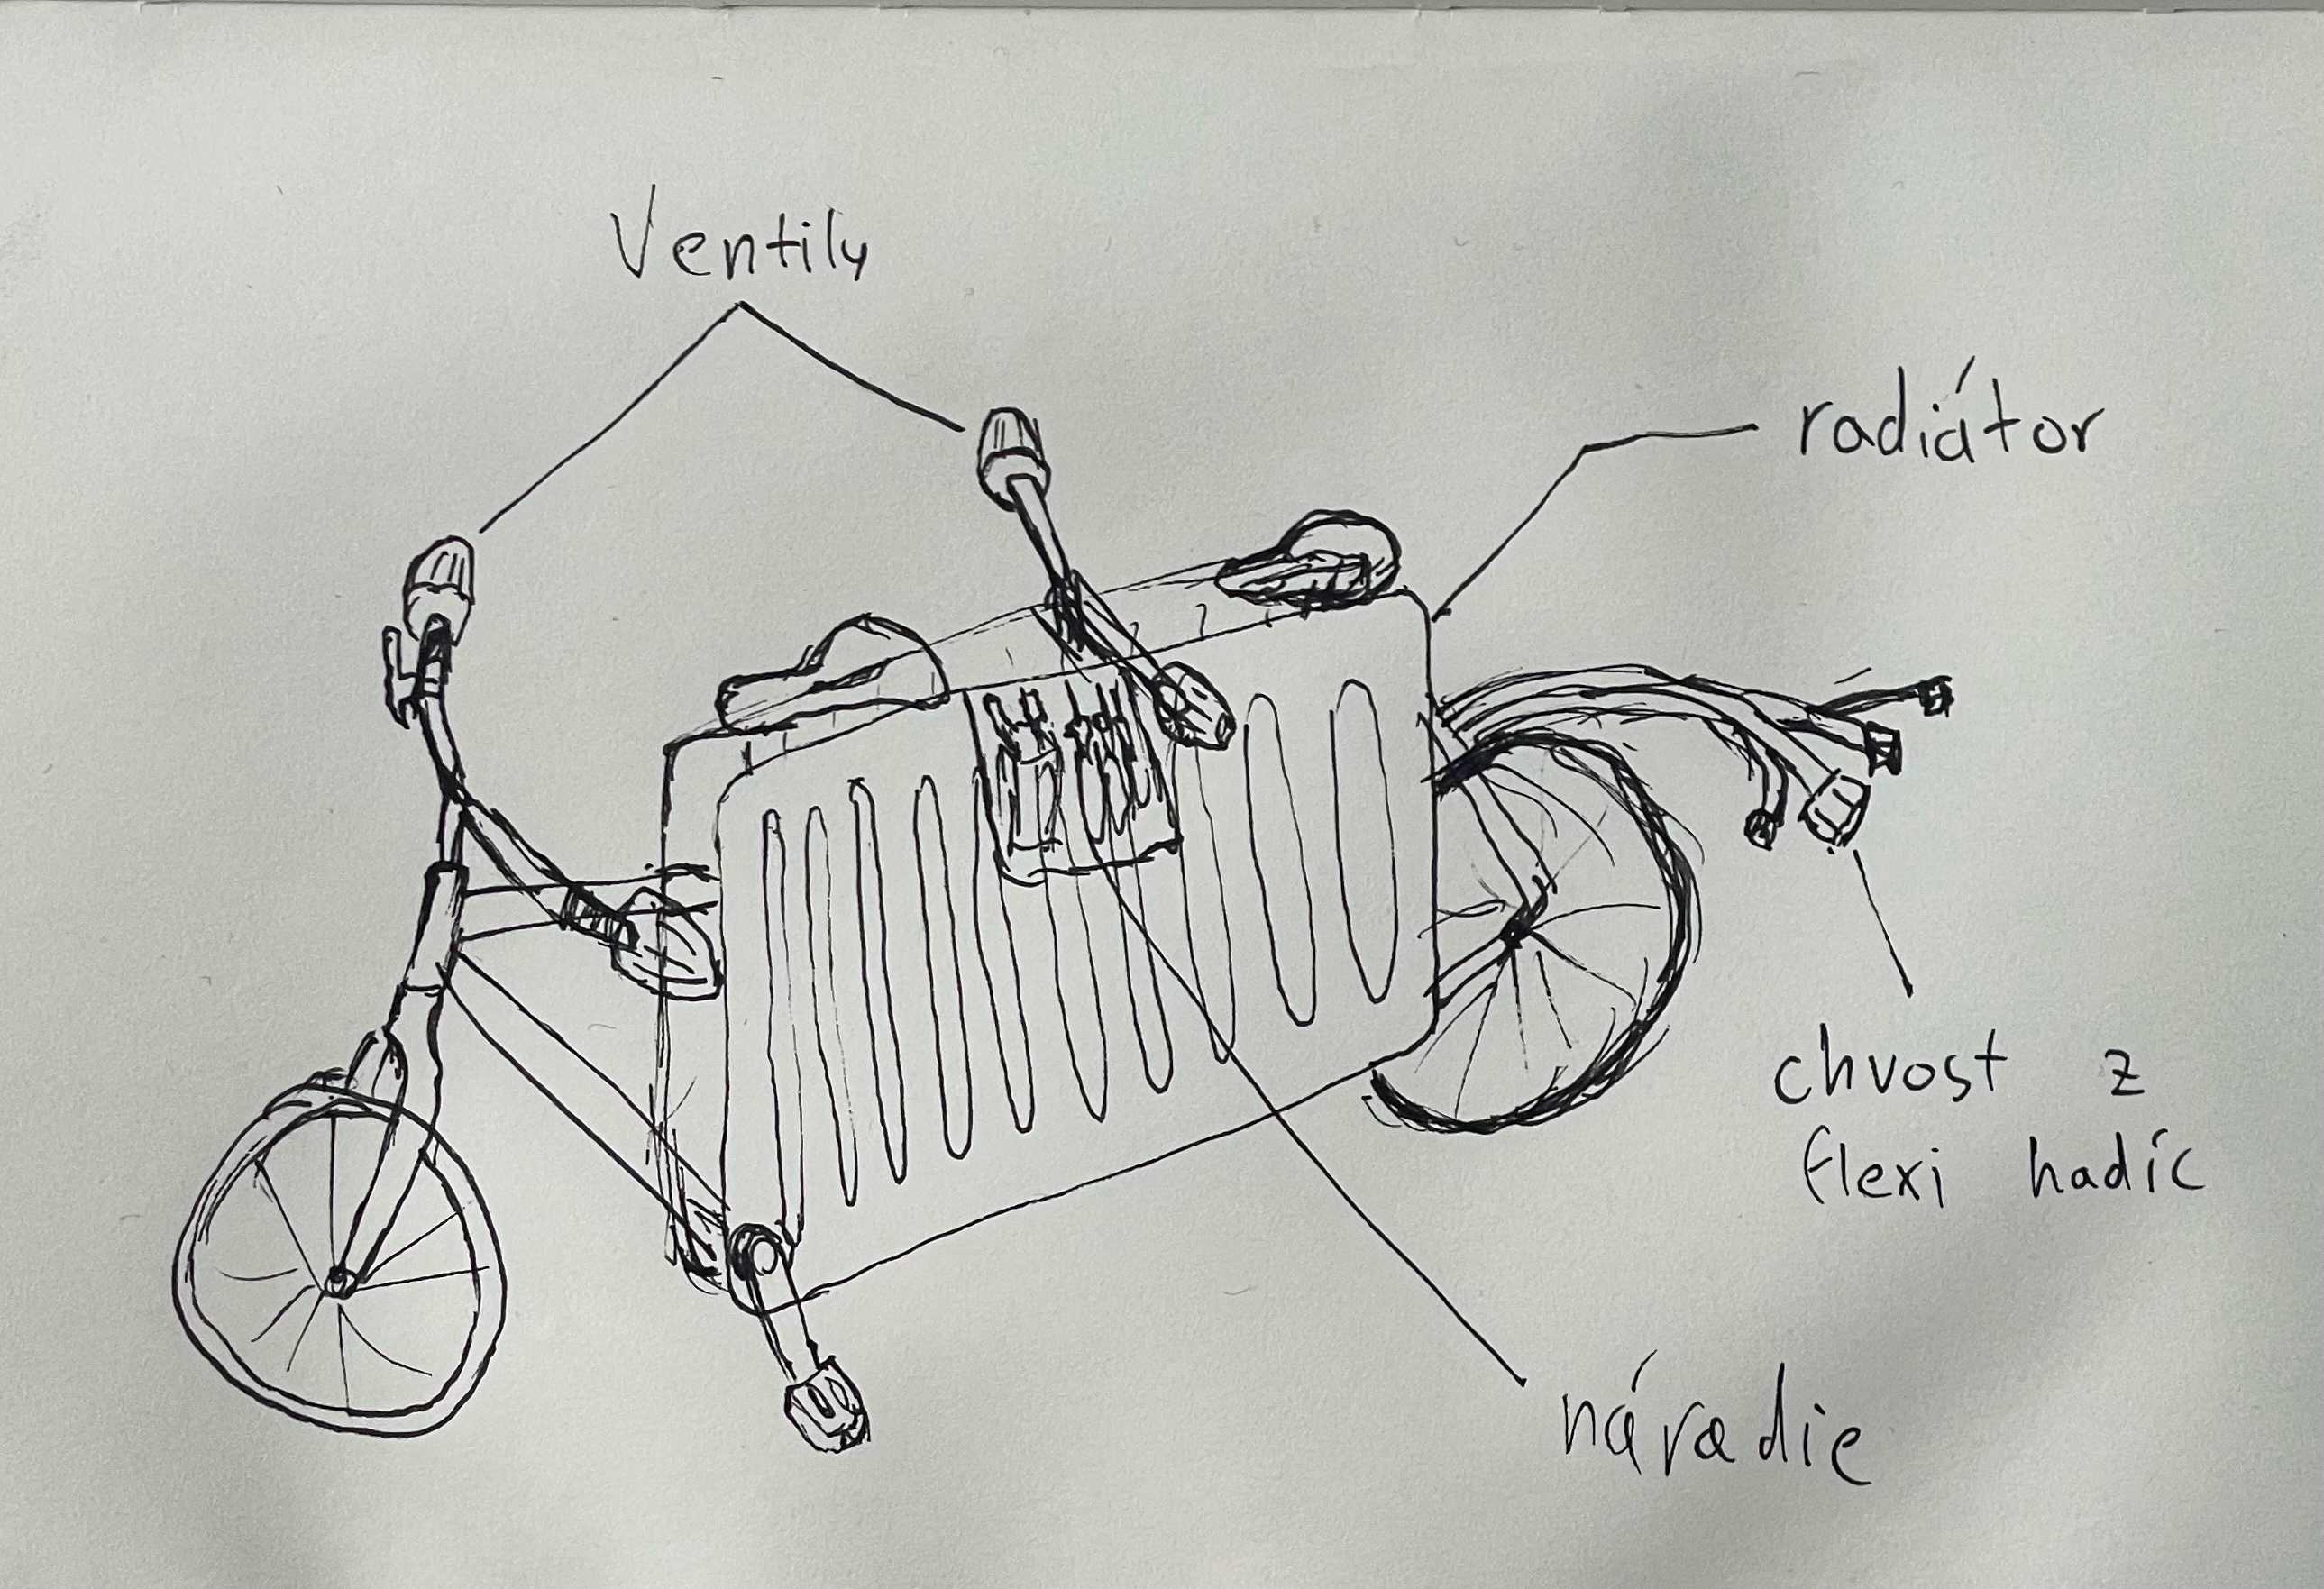 Ventily
radiátor
chvost z
flexi hadíc
náradie